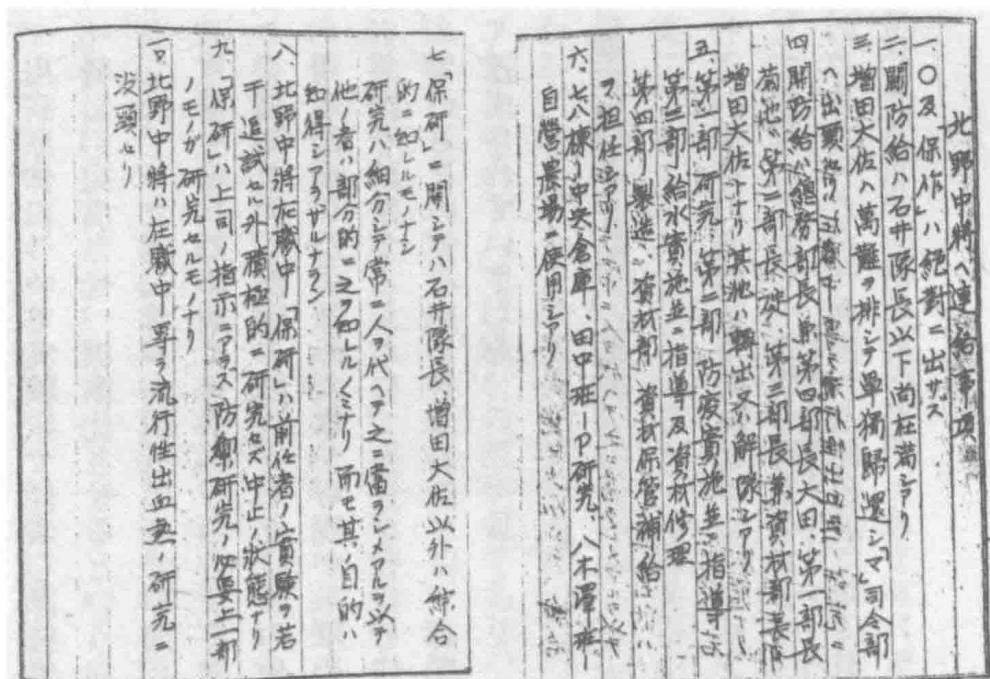 北野中將ヘ連絡事項
一、〇及「保作」ハ絶對ニ出サズ
二、關防給ハ石井隊長以下尚在滿シアリ
三、增田大佐ハ萬難ヲ排シテ單獨歸還シ「マ」司令部
ヘ出頭セリ
四、關防給ハ總務部長兼第四部長大田、第一部長
菊池、第二部長碇、第三部長兼資材部長
增田大佐ナリ 其他ハ轉出又ハ解隊シアリ
五、第一部 研究、第二部 防疫實施並ニ指導
第三部 給水實施並ニ指導及資材修理
第四部 製造、資材部 資材保管補給
ヲ担任シアリ
六、七八棟ノ中央倉庫、田中班ーP研究、八木澤班ー
自營農場ニ使用シアリ
七、「保研」ニ關シテハ石井隊長 增田大佐以外ハ綜合
的ニ知レルモノナシ
研究ハ細分シテ常ニ人ヲ代ヘテ之ニ當ラシメアルヲ以テ
他ノ者ハ部分的ニ之ヲ知レルノミナリ 而モ其ノ目的ハ
知得シアラザルナラン
八、北野中將在職中「保研」ハ前任者ノ實驗ヲ若
干追試セル外積極的ニ研究セズ中止ノ狀態ナリ
九、「保研」ハ上司ノ指示ニアラズ防禦研究ノ必要上一部
ノモノガ研究セルモノナリ
一〇、北野中將ハ在職中專ラ流行性出血熱ノ研究ニ
沒頭セリ